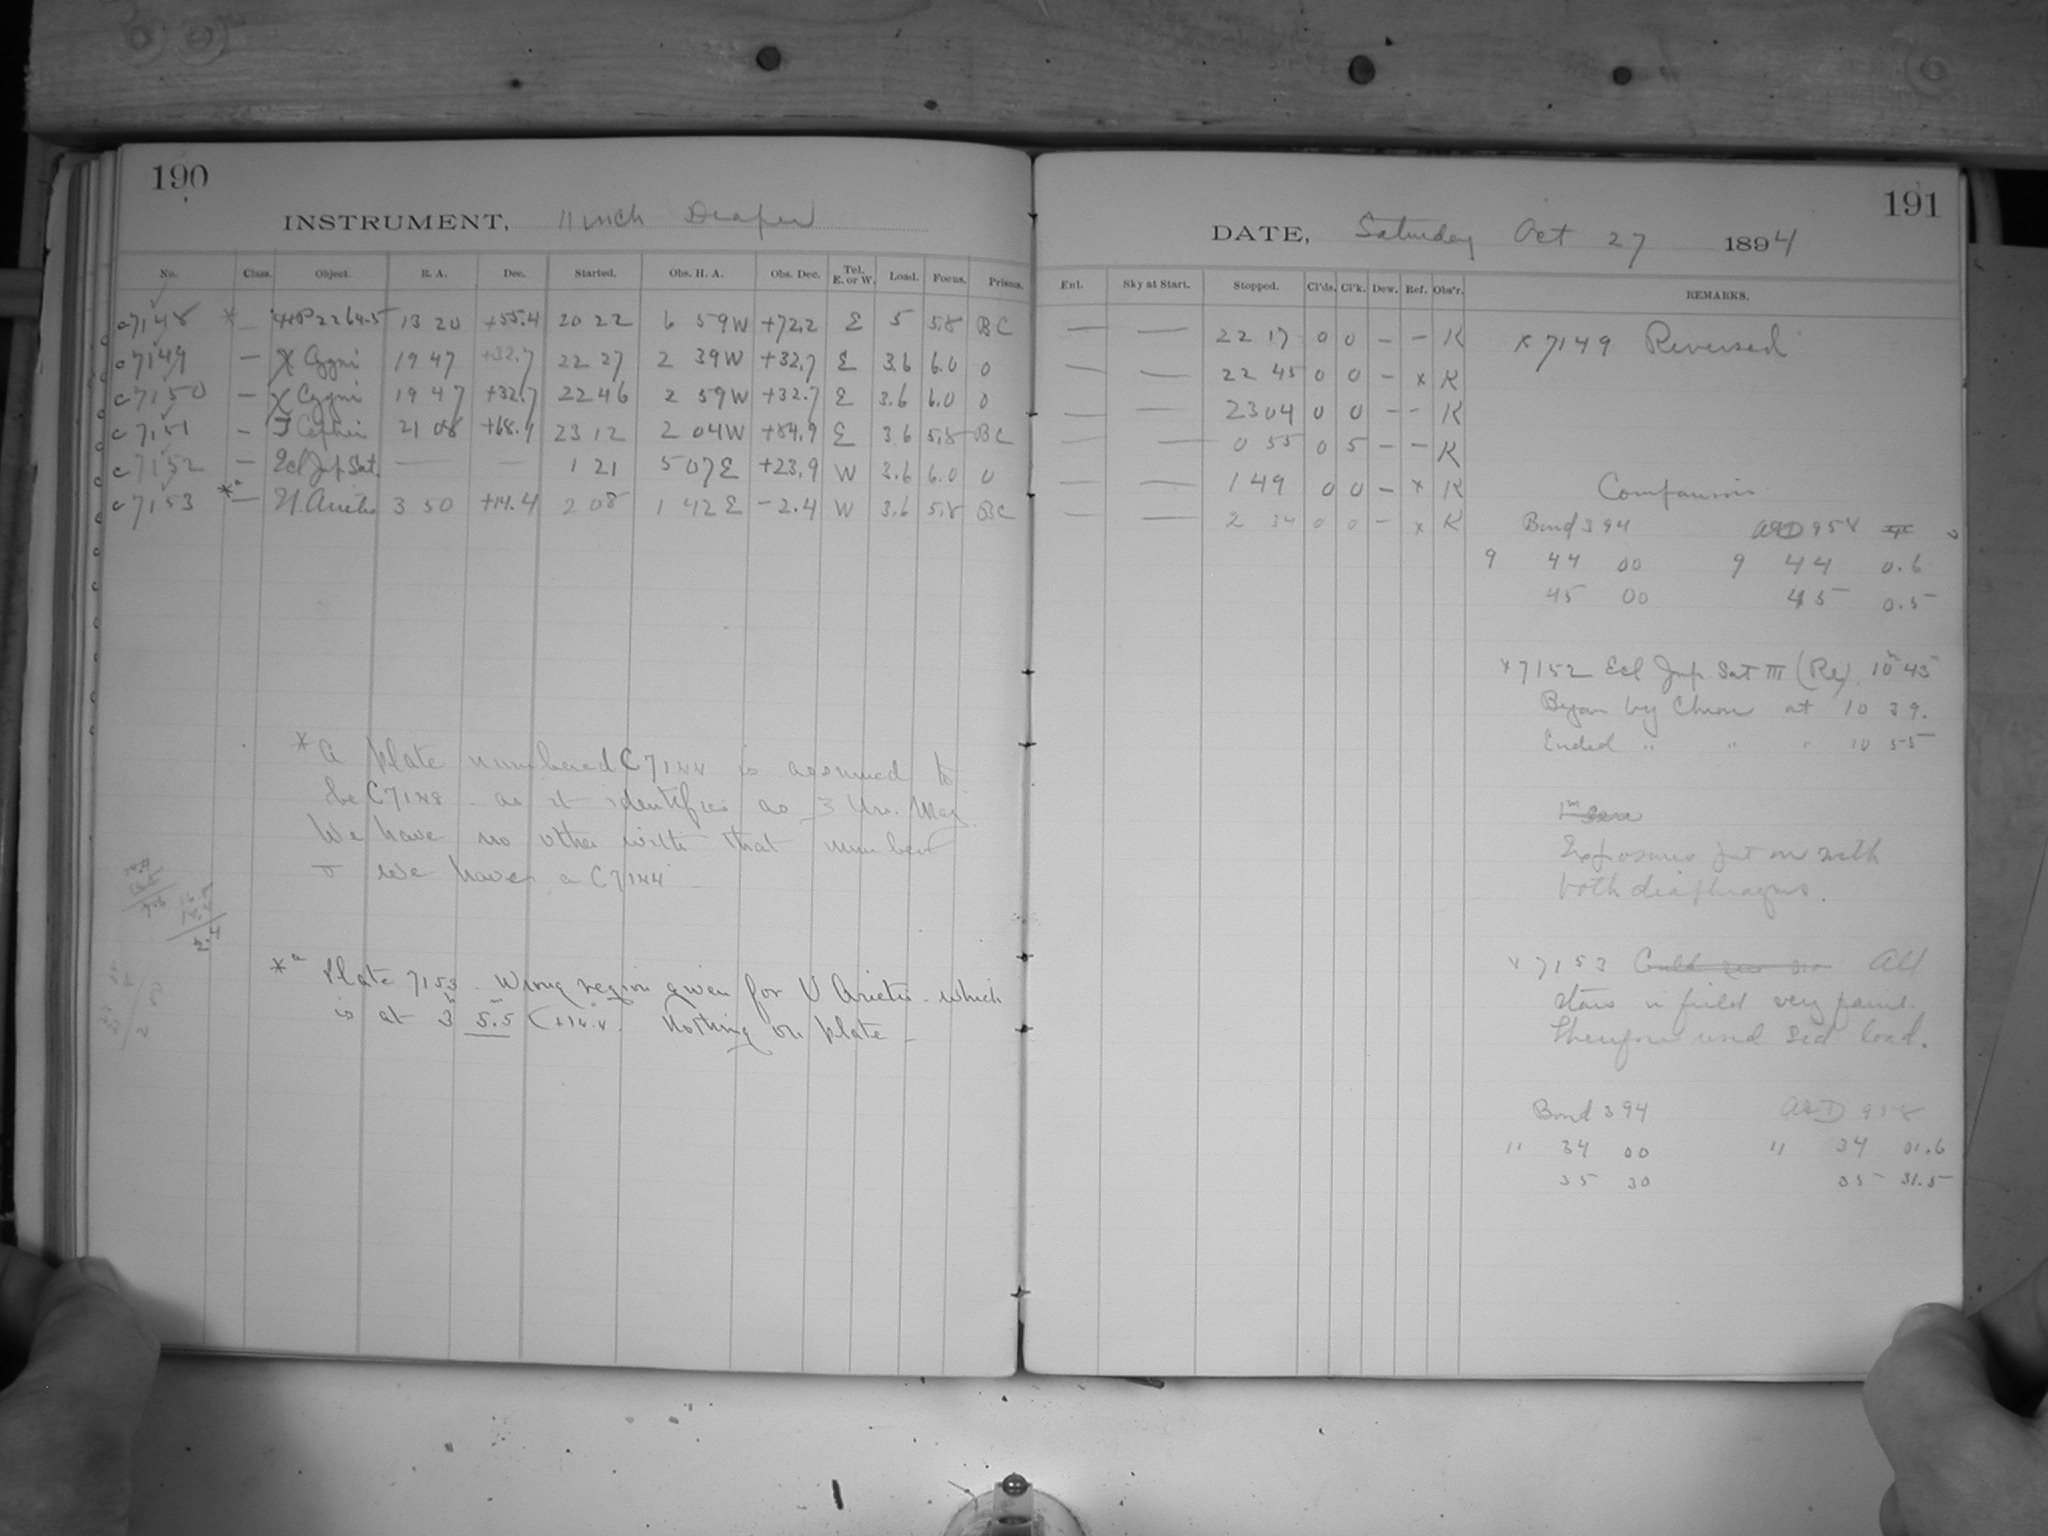 190
INSTRUMENT, 11 inch Draper
No. Class. Object. R. A. Dec. Started. Obs. H. A. Obs. Dec. Tel. E. or W. Load. Focus. Prisms.
c7148 * — HP2264.5 13 20 +55.4 20 22 6 59W +72.2 E 5 5.8 BC
c7149 — χ Cygni 19 47 +32.7 22 27 2 39W +32.7 E 3.6 6.0 0
c7150 — χ Cygni 19 47 +32.7 22 46 2 59W +32.7 E 3.6 6.0 0
c7151 — T Cephei 21 08 +68.1 23 12 2 04W +84.9 E 3.6 5.8 BC
c7152 — Ecl Jup Sat. — — 1 21 5 07E +23.9 W 3.6 6.0 0
c7153 *a — U. Arietis 3 50 +14.4 2 08 1 42E -2.4 W 3.6 5.8 BC
* A plate numbered C7144 is assumed to
be C7148. as it identifies as ζ Urs. Maj.
We have no other with that number
& we have a C7144
*a Plate 7153. Wrong region given for U Arietis - which
is at 3h 5.5m (+14.4. Nothing on plate —
191
DATE, Saturday Oct 27 1894
Enl. Sky at Start. Stopped. Cl'ds. Cl'k. Dew. Ref. Obs'r. REMARKS.
— — 22 17 0 0 — — K
— — 22 45 0 0 — x K
— — 23 04 0 0 — — K
— — 0 55 0 5 — — K
— — 1 49 0 0 — x K
— — 2 34 0 0 — x K
x 7149 Reversed
Comparisons
Bond 394 A&D 958
9 44 00 9 44 0.6
45 00 45 0.5
x7152 Ecl Jup. Sat III (Re). 10h 43m
Began by Chron at 10 39.
Ended " " " 10 55
1m
Exposures put on with
both diaphragms.
x 7153 Could see no All
stars in field very faint.
Therefore used Sid load.
Bond 394 A&D 958
11 34 00 11 34 01.6
35 30 35 31.5